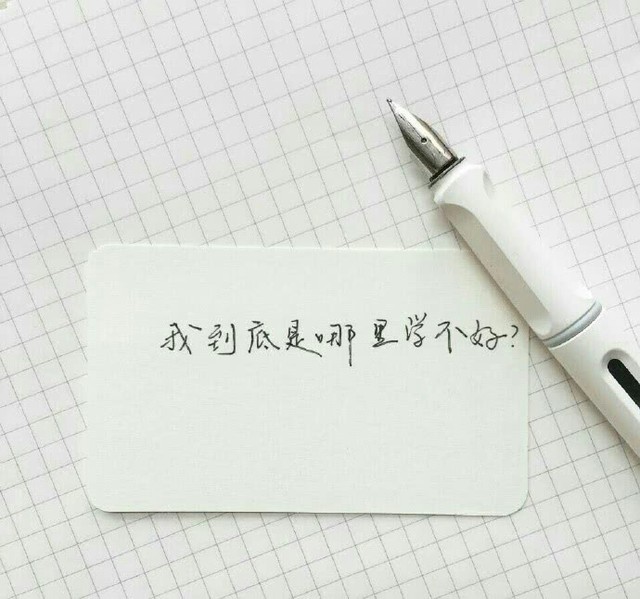 我到底是哪里学不好?